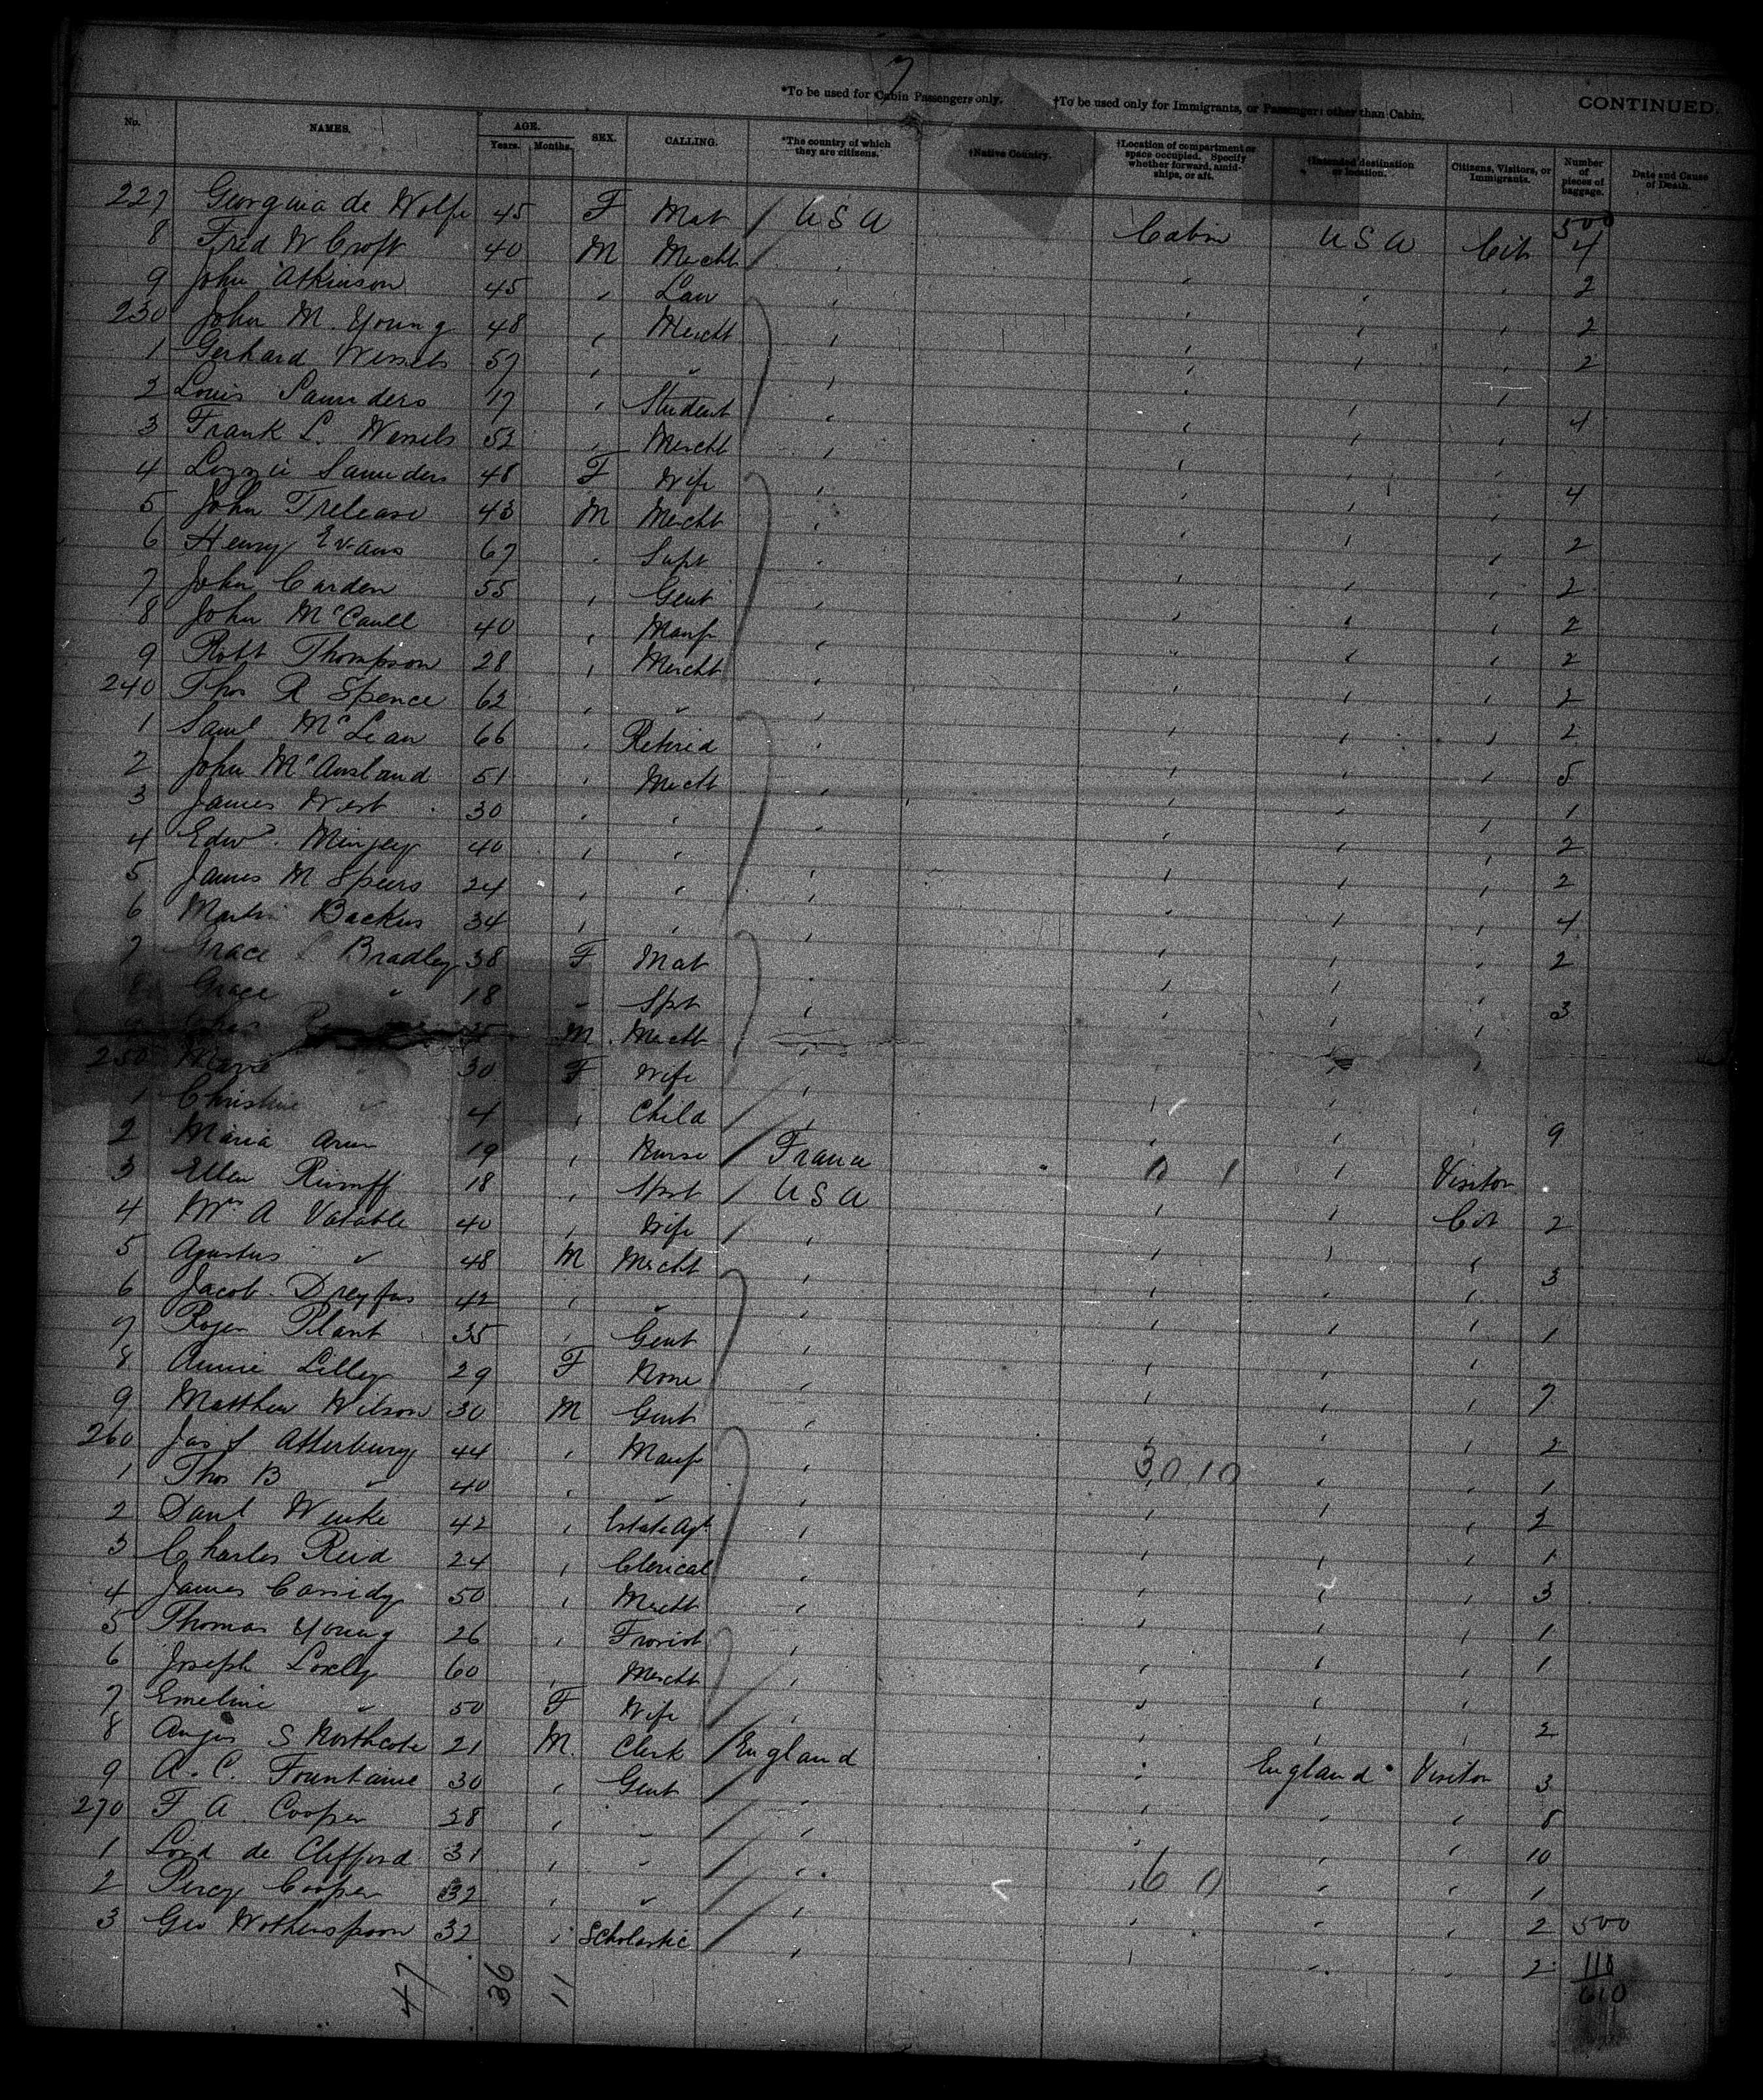 7
*To be used for Cabin Passengers only. †To be used only for Immigrants, or Passengers other than Cabin. CONTINUED.
No. NAMES. AGE. Years. Months. SEX. CALLING. *The country of which they are citizens. †Native Country. †Location of compartment or space occupied. Specify whether forward, amidships, or aft. †Intended destination or location. Citizens, Visitors, or Immigrants. Number of pieces of baggage. Date and Cause of Death.
500
227 Georgina de Wolfe 45 F Mat / U S A Cabin U S A Cit 4
8 Fred W Croft 40 M Mercht / , , , , 2
9 John Atkinson 45 , Law , , , , 2
230 John M. Young 48 , Mercht , , , , 2
1 Gerhard Wessels 57 , " , , , ,
2 Louis Saunders 17 , Student , , , , 4
3 Frank L. Wessels 53 , Mercht , , , ,
4 Lizzie Saunders 48 F Wife , , , , 4
5 John Trelease 43 M Mercht , , , , 2
6 Henry Evans 67 , Supt , , , , 2
7 John Carden 55 , Gent , , , , 2
8 John McCaull 40 , Manfr , , , , 2
9 Robt Thompson 28 , Mercht , , , , 2
240 Thos R Spence 62 , " , , , , 2
1 Saml McLean 66 , Retired , , , , 5
2 John McAusland 51 , Mercht , , , , 1
3 James West 30 , , , , , , 2
4 Edwd. 40 , , , , , , 2
5 James M Speers 24 , , , , , , 4
6 Martin Backus 34 , , , , , , 2
7 Grace Bradley 38 F Mat , , , ,
8 Grace " 18 " Spst , , , , 3
9 Chas M Mercht , , , ,
250 Marie 30 F Wife , , , ,
1 Christine " 4 , Child , , , , 9
2 Maria 19 , Nurse / France , , Visitor
3 Ellen 18 , Spst / U S A , , Cit 2
4 Mrs A Vatable 40 , Wife / , , , ,
5 Agustus " 48 M Mercht , , , , 3
6 Jacob Dreyfus 42 , " , , , , 1
7 Roger Plant 35 , Gent , , , ,
8 Annie Lilley 29 F None , , , , 7
9 Matthew Wilson 30 M Gent , , , , 2
260 Jas S Atterbury 44 , Manfr , 30 10 , , 1
1 Thos B " 40 , " , , , , 2
2 Danl 42 , Estate Agt , , , , 1
3 Charles Reid 24 , Clerical , , , , 3
4 James Cassidy 50 , Mercht , , , , 1
5 Thomas Young 26 , , , , , 1
6 Joseph Lovely 60 , Mercht , , , ,
7 Emeline " 50 F Wife , , , , 2
8 Angus S Northcote 21 M. Clerk / England , England Visitor 3
9 A. C. Fountaine 30 , Gent / , , , , 8
270 F A Cooper 38 , " / , , , , 10
1 Lord de Clifford 31 , " / , 6 0 , , 1
2 Percy Cooper 32 , " / , , , , 2 500
3 Geo Wotherspoon 32 , Scholastic / , , , , 2 110
610
47 36 11